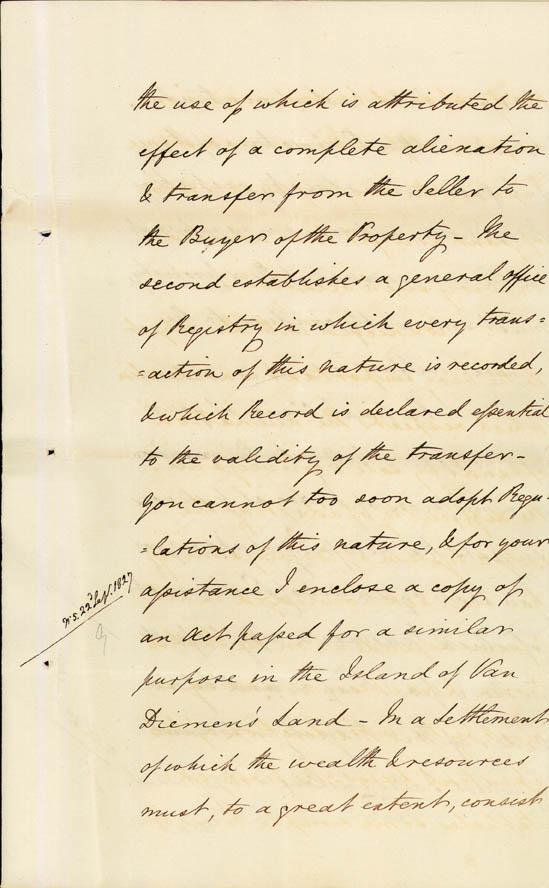 the use of which is attributed the
effect of a complete alienation
& transfer from the Seller to
the Buyer of the Property - The
second establishes a general office
of Registry in which every trans=
=action of this nature is recorded,
& which Record is declared essential
to the validity of the transfer -
You cannot too soon adopt Regu-
=lations of this nature, & for your
assistance I enclose a copy of
an Act passed for a similar
purpose in the Island of Van
Diemen's Land - In a Settlement
of which the wealth & resources
must, to a great extent, consist
No 5. 22d Sept. 1827